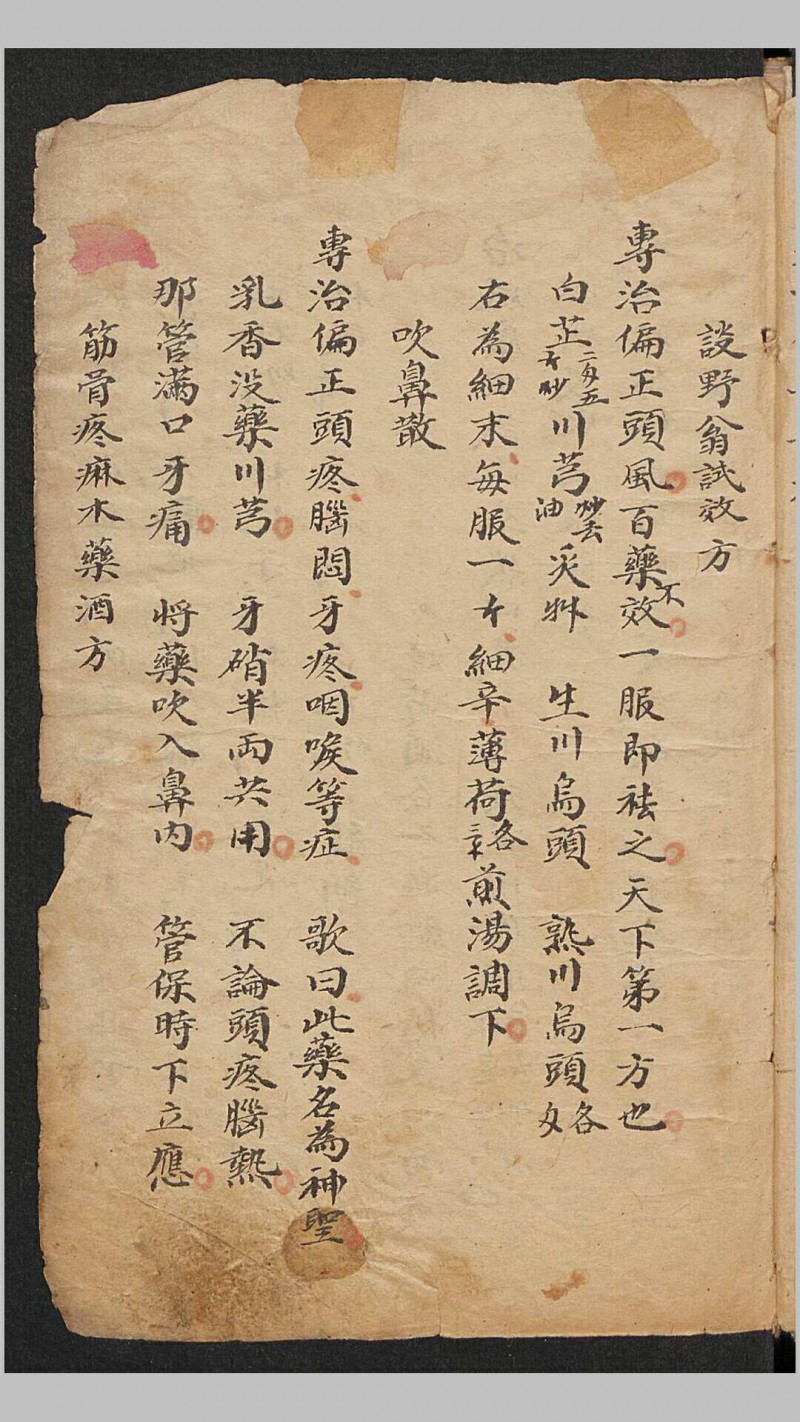 談野翁試效方
專治偏正頭風百藥不效一服即祛之天下第一方也
白芷二匁五卜炒川芎炒去油炙艸 生川烏頭 熟川烏頭各匁
右為細末每服一卜細辛薄荷各三卜煎湯調下
吹鼻散
專治偏正頭疼腦悶牙疼咽喉等症 歌曰此藥名為神聖
乳香没藥川芎 牙硝半兩共用 不論頭疼腦熱
那管滿口牙痛 将藥吹入鼻内 管保時下立應
筋骨疼麻木藥酒方